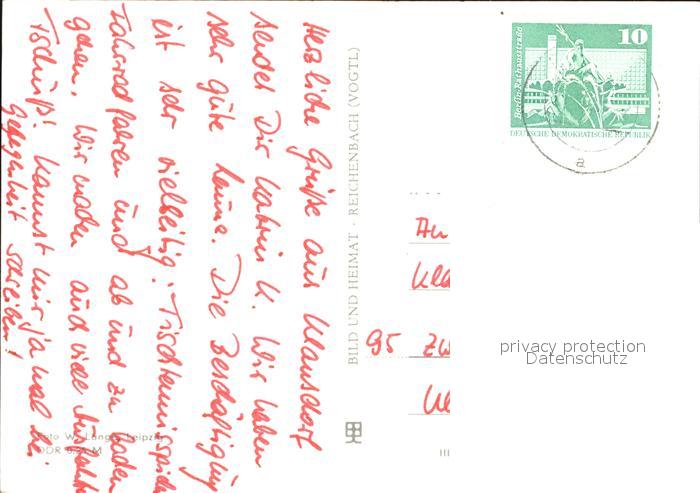 Herzliche Grüße aus Klausdorf
sendet Dir Katrin K. Wir haben
sehr gute Laune. Die Beschäftigung
ist sehr vielseitig. Tischtennisspielen
Fahrrad fahren und ab und zu baden
gehen. Wir machen auch viele
Tschüß! Kannst mir ja mal bei
Gelegenheit schreiben!
Foto W. Lange, Leipzig
BILD UND HEIMAT · REICHENBACH (VOGTL)
Berlin-Rathausstraße
10
DEUTSCHE DEMOKRATISCHE REPUBLIK
a
An
Kla
95 Zw
III
privacy protection
Datenschutz